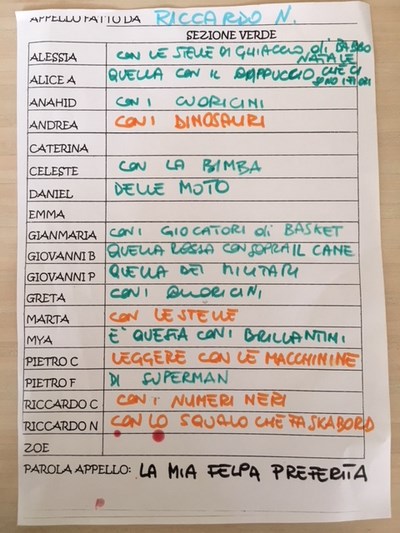 APPELLO FATTO DA RICCARDO N.
SEZIONE VERDE
ALESSIA CON LE STELLE DI GHIACCIO di BABBO NATALE
ALICE A QUELLA CON IL CAPPUCCIO CHE CI SONO I FIORI
ANAHID CON I CUORICINI
ANDREA CON I DINOSAURI
CATERINA
CELESTE CON LA BIMBA
DANIEL DELLE MOTO
EMMA
GIANMARIA CON I GIOCATORI di BASKET
GIOVANNI B QUELLA ROSSA CON SOPRA IL CANE
GIOVANNI P QUELLA DEI MILITARI
GRETA CON I CUORICINI
MARTA CON LE STELLE
MYA E' QUESTA CON I BRILLANTINI
PIETRO C LEGGERE CON LE MACCHININE
PIETRO F DI SUPERMAN
RICCARDO C CON I NUMERI NERI
RICCARDO N CON LO SQUALO CHE FA SKABORD
ZOE
PAROLA APPELLO: LA MIA FELPA PREFERITA